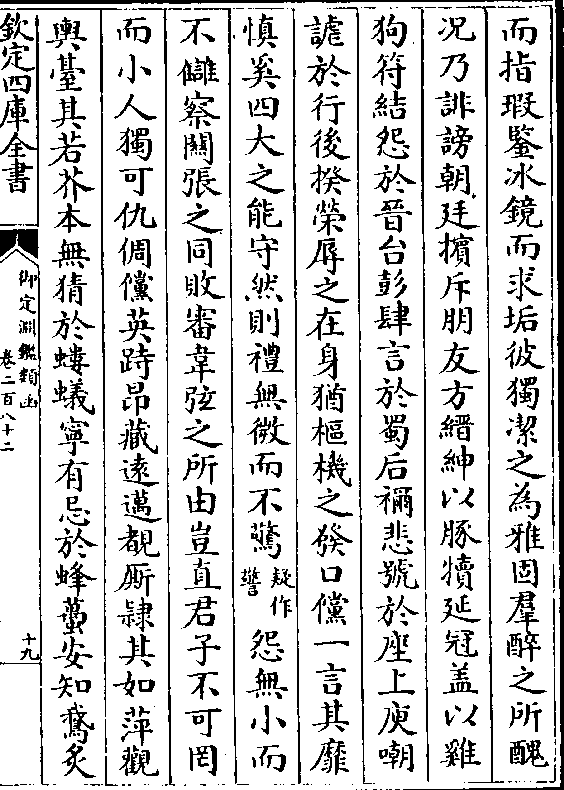 而指瑕鑒冰鏡而求垢彼獨潔之為雅固羣醉之所醜
况乃誹謗朝廷擯斥朋友方縉紳以豚犢延冠盖以雞
狗符結怨於晉台彭肆言於蜀后禰悲號於座上庾嘲
謔於行後揆榮辱之在身猶樞機之發口儻一言其靡
慎奚四大之能守然則禮無微而不驚疑作警怨無小而
不讎察關張之同敗審韋弦之所由豈直君子不可罔
而小人獨可仇倜儻英跱昂藏遠邁覩厮隷其如萍觀
輿臺其若芥本無猜於螻蟻寧有忌於蜂蠆安知鵞炙
欽定四庫全書
御定淵鑑類函
卷二百八十二
十九